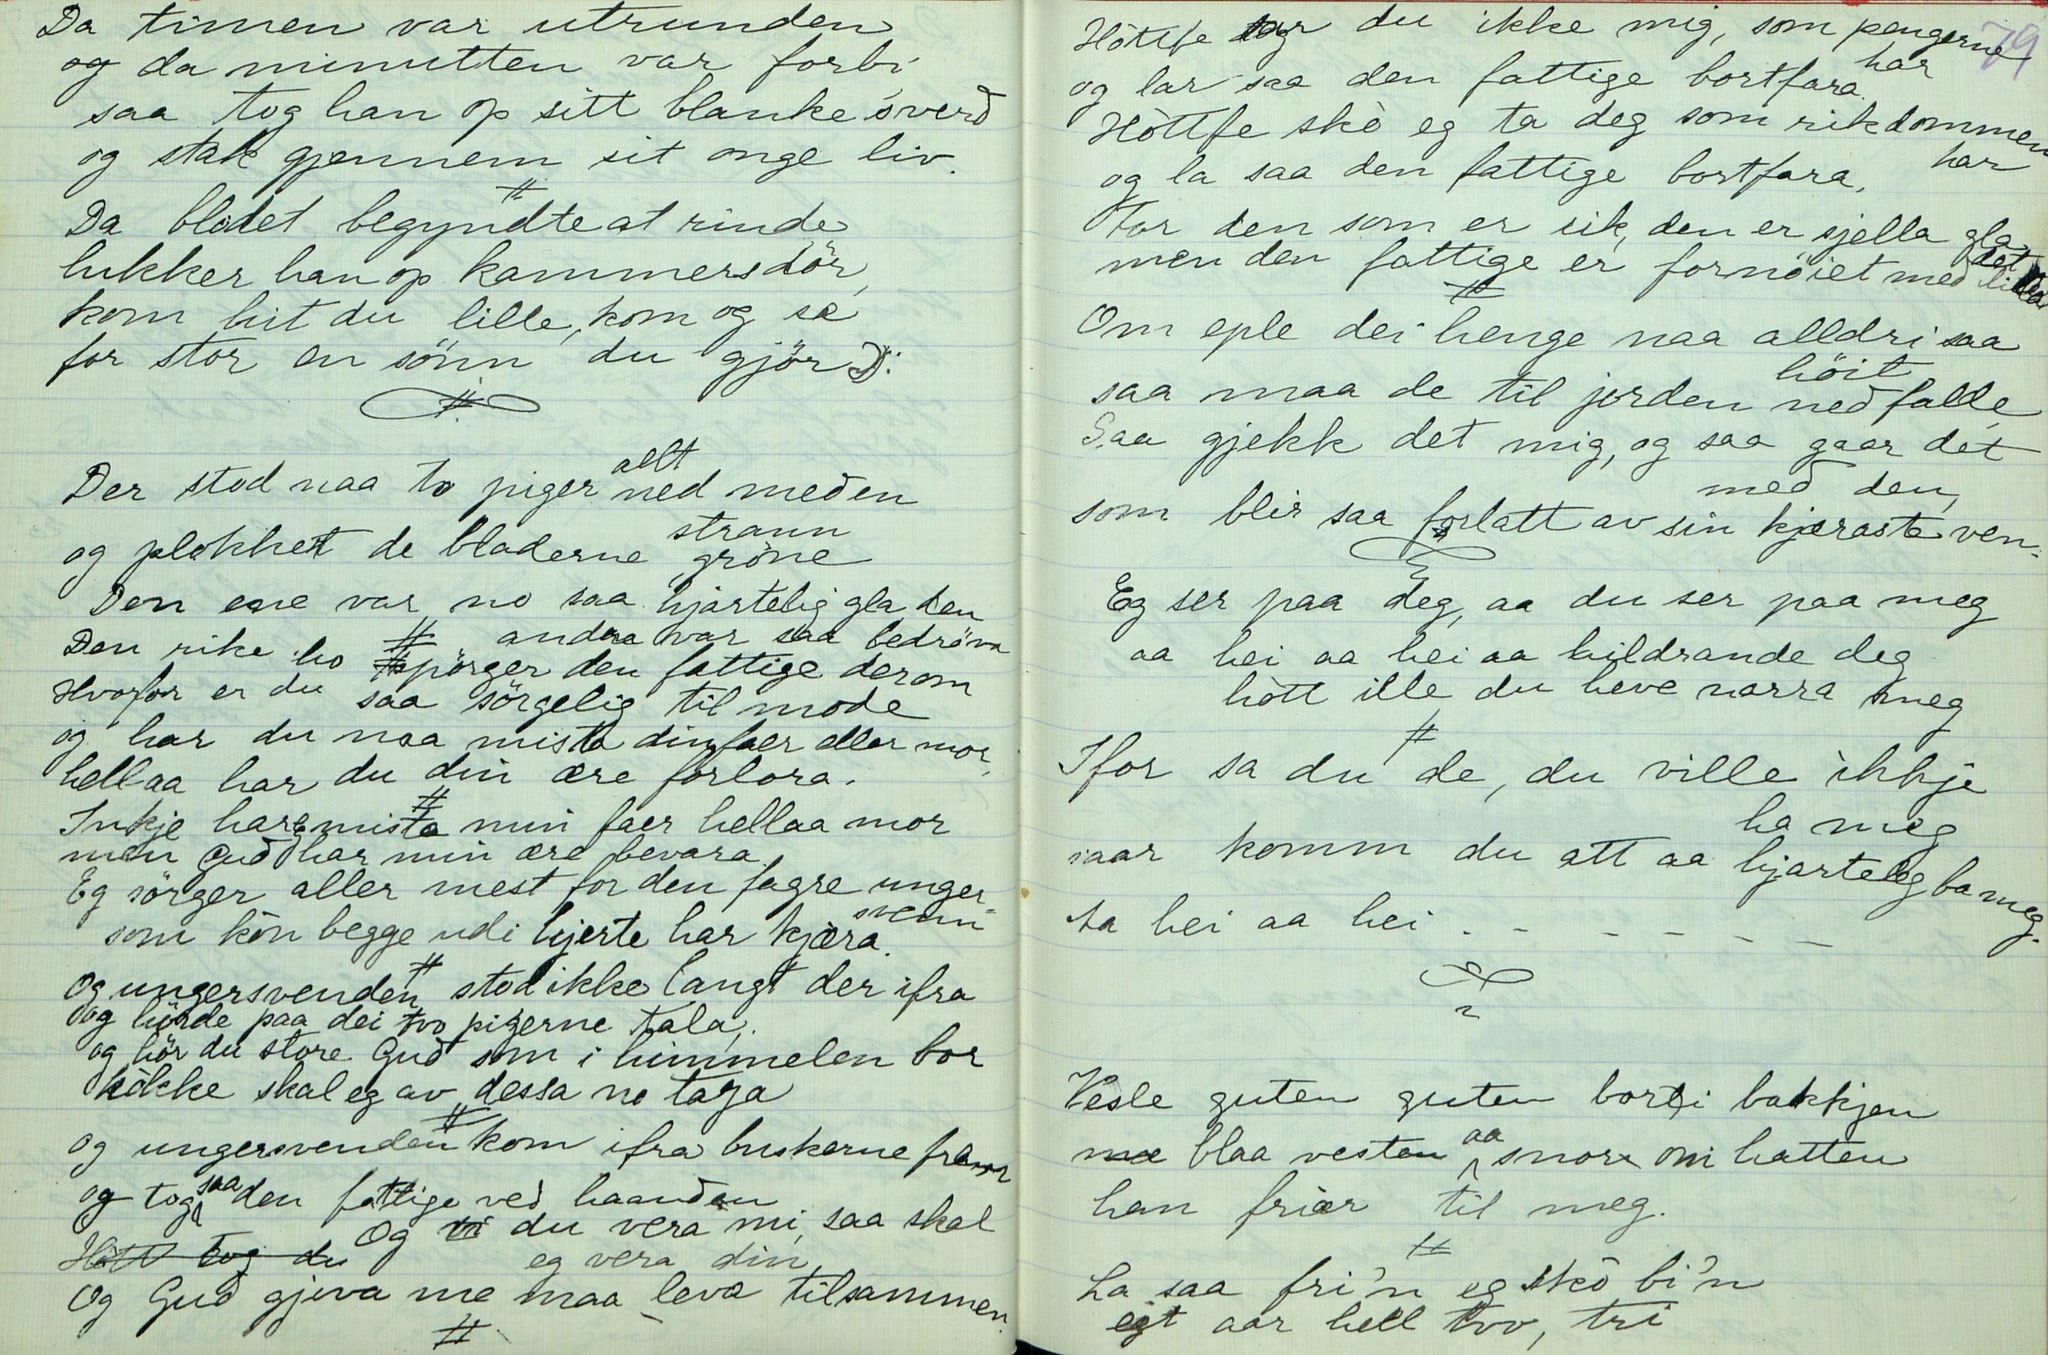 Da timen var utrunden
og da minutten var forbi
saa tog han op sitt blanke sverd
og stak gjennem sit onge liv.
#
Da blodet begyndte at rinde
lukker han op kammersdör,
kom hit du lille, kom og se
for stor en sönn du gjör
#
Der stod naa to piger alt ned med en strann
og plokket de bladerne gröne
Den ene var no saa hjartelig gla den andra var saa bedröva
#
Den rike ho spörger den fattige derom
Hvorfor er du saa sörgelig til mode
og har du naa mista din faer eller mor,
hellaa har du din ære forlora.
#
Inkje har eg mista min faer hellaa mor
men Gud har min ære bevara.
Eg sörger aller mest for den fagre ungersvenn
som kòn begge udi hjerte har kjæra.
#
Og ungersvenden stod ikke langt der ifra
og hörde paa dei tvo pigerne tala,
og hör du store Gud som i himmelen bor
hòkke skal eg av dessa no taga
#
og ungersvenden kom ifra buskerne fram
og tog saa den fattige ved haanden
Hòtt tog du Og vi du vera mi, saa skal eg vera din
Og Gud gjeva me maa leva tilsammen.
#
79
Hòttfe tar du ikke mig, som pengerne har
og lar saa den fattige bortfara.
Hòttfe skò eg ta deg som rikdommen har
og la saa den fattige bortfara.
For den som er rik, den er sjella gla
men den fattige er fornöiet med det lilla
#
Om eple dei henge naa alldri saa höit
saa maa de til jorden nedfalde
Saa gjekk det mig, og saa gaar det med den,
som blir saa forlatt av sin kjæraste ven.
Eg ser paa deg, aa du ser paa meg
aa hei aa hei aa hildrande deg
hòtt ille du heve narra meg
#
Ifor sa du de, du ville ikkje ha meg
iaar komm du att aa hjarteleg ba meg.
Aa hei aa hei . - - - - - -
Vesle guten guten borti bakkjen
me blaa vesten aa snore om hatten
han friar til meg.
#
La saa fri'n eg skò bi'n
eit aar hell tvo, tri